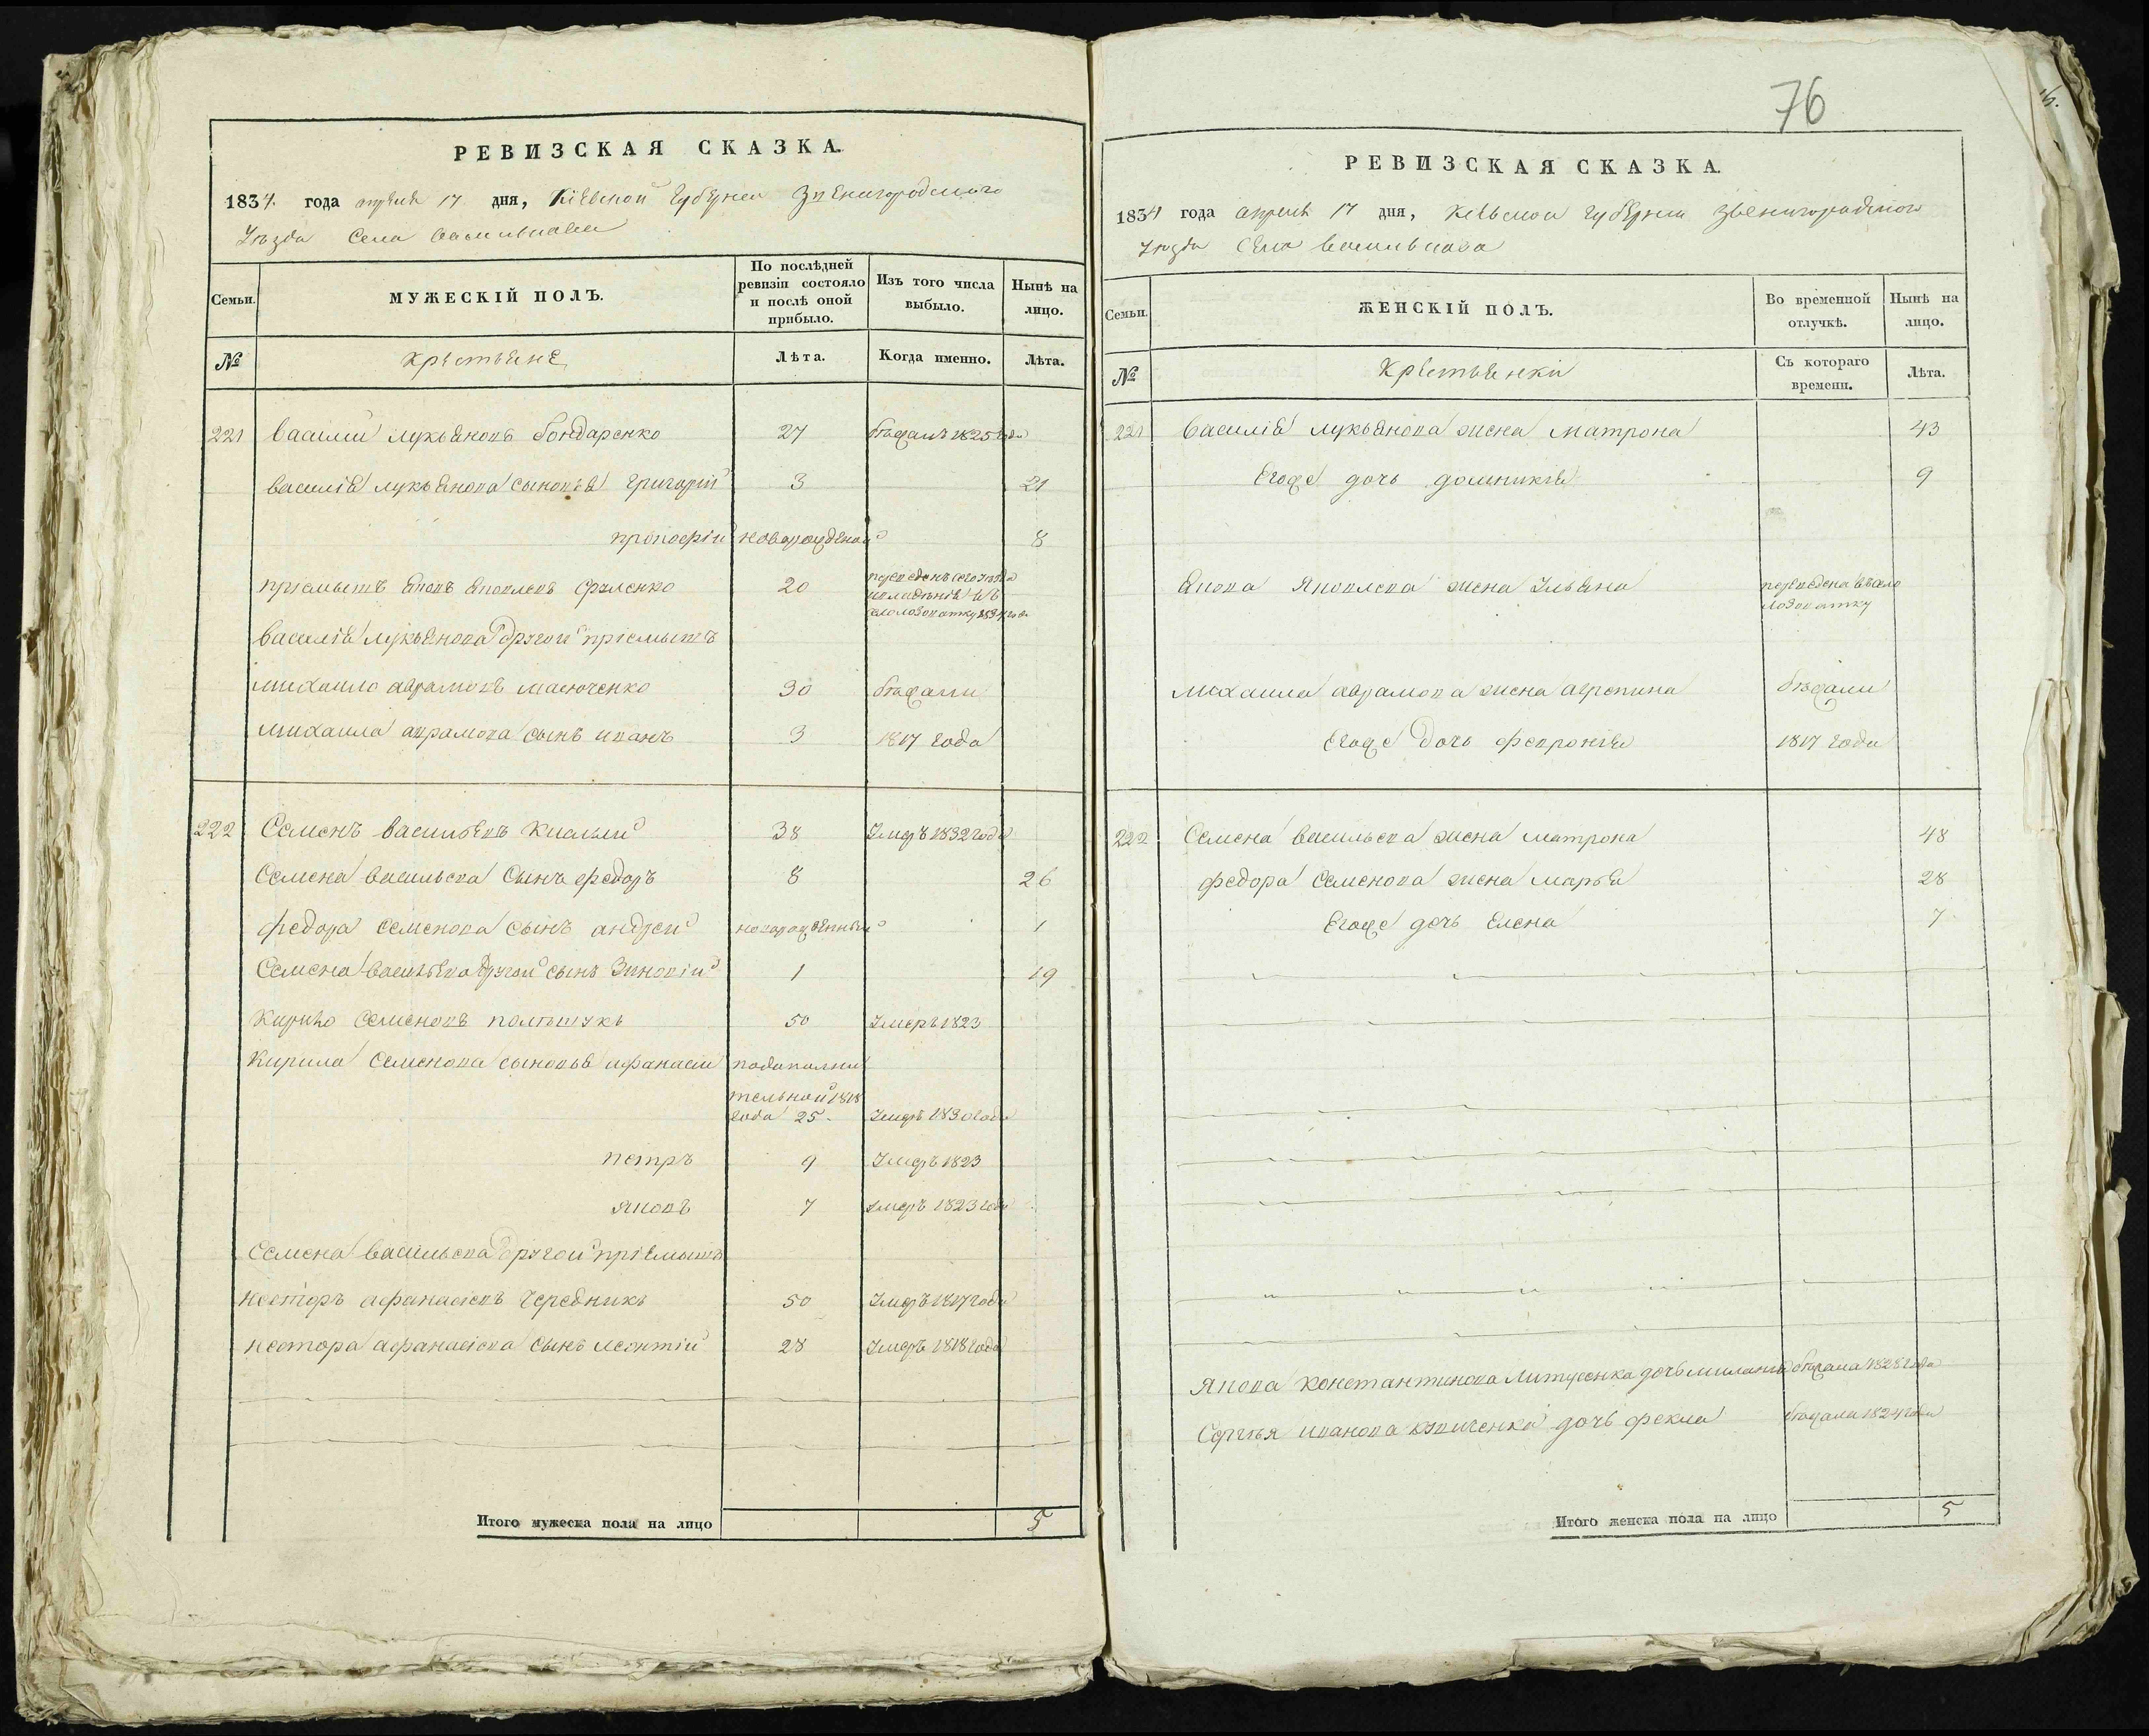 РЕВИЗСКАЯ СКАЗКА.
1834. года апреля 17 дня, Кіевской Губернеи Звенигородского
Уезда Села Василькова
Семьи.
МУЖЕСКІЙ ПОЛЪ.
По послѣдней ревизіи состояло и послѣ оной прибыло.
Изъ того числа выбыло.
Нынѣ на лицо.
№
Крестьяне
Лѣта.
Когда именно.
Лѣта.
221 Василий Лукьяновъ Бондаренко 27 бежалъ 1825 года
Василія Лукьянова сыновья Григорій 3 21
Прокофій новорожденой 8
приемышъ Яковъ Яковлевъ 20 переведенъ сего уезда
имения въ
село 1834 года
Василія Лукьянова другой приемышъ
Михаило Аврамовъ 30 бежали
Михаила Аврамова сынъ Иванъ 3 1817 года
222 Семенъ Васильевъ 38 Умеръ 1832 года
Семена Васильева сынъ Федоръ 8 26
Федора Семенова сынъ Андрей новорожденный 1
Семена Васильева другой сынъ Зиновій 1 19
Кирило Семеновъ 50 Умеръ 1823
Кирила Семенова сыновья Афанасий подополни
тельной 1818
года 25. Умеръ 1830 года
Петръ 9 Умеръ 1823
Яковъ 7 Умеръ 1823 года
Семена Васильева другой приемышъ
Несторъ Афанасіевъ Чередникъ 50 Умеръ 1817 года
Нестора Афанасіева сынъ Леонтій 28 Умеръ 1818 года
Итого мужеска пола на лицо 5
76
РЕВИЗСКАЯ СКАЗКА.
1834 года апреля 17 дня, Кіевской Губернии Звенигородского
Уезда Села Василькова
Семьи.
ЖЕНСКІЙ ПОЛЪ.
Во временной отлучкѣ.
Нынѣ на лицо.
№
Крестьянки
Съ котораго времени.
Лѣта.
221 Василія Лукьянова жена Матрона 43
Егоже дочь Домникія 9
Якова Яковлева жена Ульяна переведена въ село
Михаила Аврамова жена Агрепина бежали
Егоже дочь Февронія 1817 года
222 Семена Васильева жена Матрона 48
Федора Семенова жена Марья 28
Егоже дочь Елена 7
Якова Константинова дочь бежала 1828 года
Сергѣя Иванова дочь Фекла бежала 1824 года
Итого женска пола на лицо 5